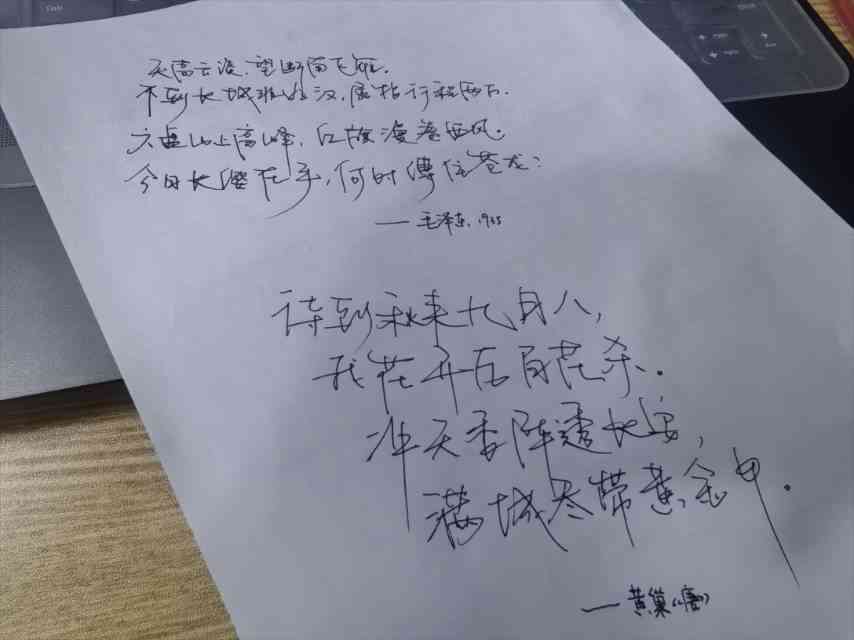 天高云淡,望断南飞雁。
不到长城非好汉,屈指行程两万。
六盘山上高峰,红旗漫卷西风。
今日长缨在手,何时缚住苍龙?
——毛泽东,1935
待到秋来九月八,
我花开后百花杀。
冲天香阵透长安,
满城尽带黄金甲。
——黄巢(唐)